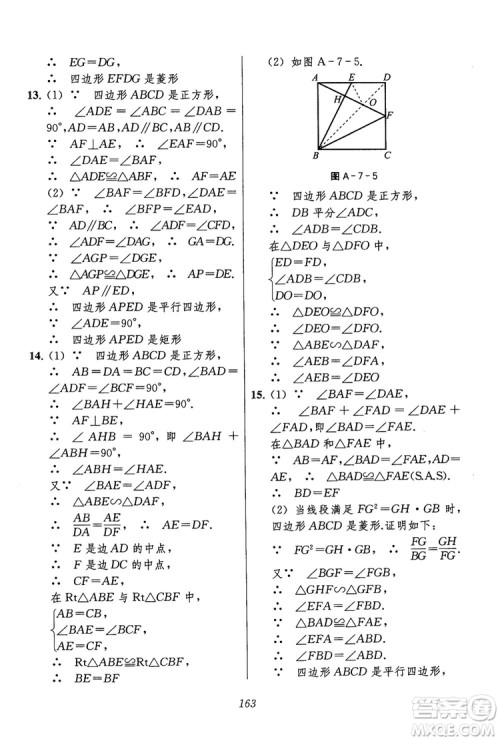 ∴ EG=DG,
∴ 四边形 EFDG 是菱形
13. (1) ∵ 四边形 ABCD 是正方形,
∴ ∠ADE=∠ABC=∠DAB=
90°,AD=AB,AD∥BC,AB∥CD
∵ AF⊥AE,
∴ ∠DAE=∠BAF,
∴ △ADE≌△ABF, ∴ AF=AE
(2) ∵ ∠BAF=∠BFD,
∴ ∠ABF=∠FPE=90°,
∴ ∠BAF=∠CFD, ∴ ∠ADE=∠CFD,
∵ AD∥BC, ∴ ∠ADG=∠CFD,
∴ ∠ADF=∠DAG, ∴ GA=DG.
∵ ∠AGP=∠DGE,
∴ △AGP≌△DGE, ∴ AP=DE.
又∵ AP∥ED,
∴ 四边形 APED 是平行四边形,
∵ ∠ADE=90°,
∴ 四边形 APED 是矩形
14. (1) ∵ 四边形 ABCD 是正方形,
∴ AB=DA=BC=CD, ∠BAE=
∠ADF=∠BCF=90°,
∴ ∠BAH+∠HAE=90°.
∵ AF⊥BE,
∴ ∠AHB=90°,即∠ABH+
∠BAH=90°,
∴ ∠ABH=∠HAE.
又∵ ∠BAE=∠ADF,
∴ △ABE∽△DAF,
∴ AB/DA=AE/DF.
∵ E 是边 AD 的中点,
∴ F 是边 DC 的中点,
∴ CF=AE,
在 Rt△ABE 与 Rt△CBF 中,
AB=CB,
∠BAE=∠BCF,
AE=CF,
∴ Rt△ABE≌Rt△CBF,
∴ BE=BF
(2) 如图 A-7-5.
A E D
H O
F
B C
图 A-7-5
∵ 四边形 ABCD 是正方形,
∴ DB 平分∠ADC,
∴ ∠ADB=∠CDB.
在△DEO 与△DFO 中,
ED=FD,
∠ADB=∠CDB,
DO=DO,
∴ △DEO≌△DFO,
∴ ∠DEO=∠DFO.
∵ △ABE∽△DAF,
∴ ∠AEB=∠DFA,
∴ ∠AEB=∠DEO
15. (1) ∵ ∠BAF=∠DAE,
∴ ∠BAF+∠FAD=∠DAE+
∠FAD,即∠BAD=∠FAE.
在△BAD 和△FAE 中,
∵ AB=AE,∠BAD=∠FAE,
AF=AD,
∴ △BAD≌△FAE(S.A.S),
∴ BD=EF
(2) 当线段满足 FG²=GH·GB 时,
四边形 ABCD 是菱形.证明如下:
∵ FG²=GH·GB, ∴ FG/BG=GH/FG.
又∵ ∠BGF=∠FGB,
∴ △GHF∽△GFB,
∴ ∠EFA=∠FBD.
∵ △BAD≌△FAE,
∴ ∠EFA=∠ADB,
∴ ∠FBD=∠ADB,
∴ AD∥BC.
又∵ AB∥CD,
∴ 四边形 ABCD 是平行四边形,
163